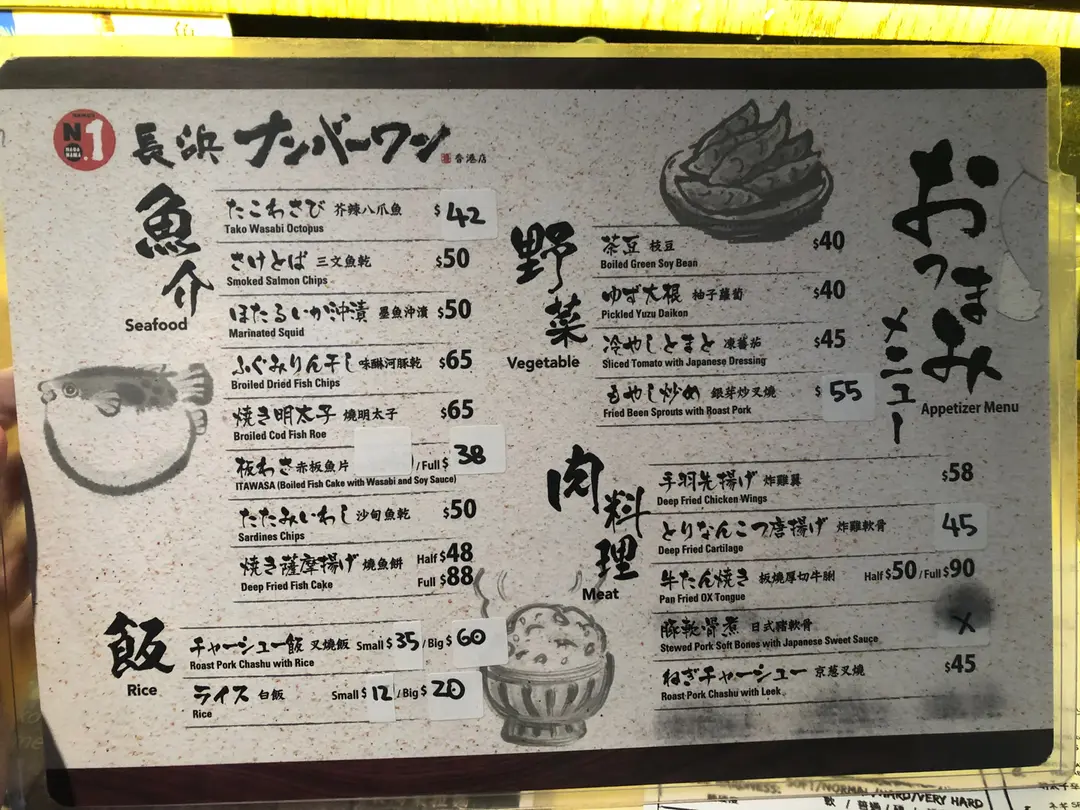 N
1
長浜 ナンバーワン 香港店
魚介
Seafood
たこわさび 芥辣八爪魚 $ 42
Tako Wasabi Octopus
さけとば 三文魚乾 $50
Smoked Salmon Chips
ほたるいか沖漬 墨魚沖漬 $50
Marinated Squid
ふぐみりん干し 味醂河豚乾 $65
Broiled Dried Fish Chips
焼き明太子 燒明太子 $65
Broiled Cod Fish Roe
板わさ 赤板魚片 / Full $ 38
ITAWASA (Boiled Fish Cake with Wasabi and Soy Sauce)
たたみいわし 沙甸魚乾 $50
Sardines Chips
焼き薩摩揚げ 燒魚餅 Half $48
Deep Fried Fish Cake Full $88
飯
Rice
チャーシュー飯 叉燒飯 Small $ 35 / Big $ 60
Roast Pork Chashu with Rice
ライス 白飯 Small $ 12 / Big $ 20
Rice
野菜
Vegetable
茶豆 枝豆 $40
Boiled Green Soy Bean
ゆず大根 柚子蘿蔔 $40
Pickled Yuzu Daikon
冷やしとまと 凍蕃茄 $45
Sliced Tomato with Japanese Dressing
もやし炒め 銀芽炒叉燒 $ 55
Fried Been Sprouts with Roast Pork
肉料理
Meat
手羽先揚げ 炸雞翼 $58
Deep Fried Chicken Wings
とりなんこつ唐揚げ 炸雞軟骨 45
Deep Fried Cartilage
牛たん焼き 板燒厚切牛脷 Half $50 / Full $90
Pan Fried OX Tongue
豚軟骨煮 日式豬軟骨 X
Stewed Pork Soft Bones with Japanese Sweet Sauce
ねぎチャーシュー 京葱叉燒 $45
Roast Pork Chashu with Leek
おつまみ
メニュー
Appetizer Menu
SOFT/NORMAL/HARD/VERY HARD